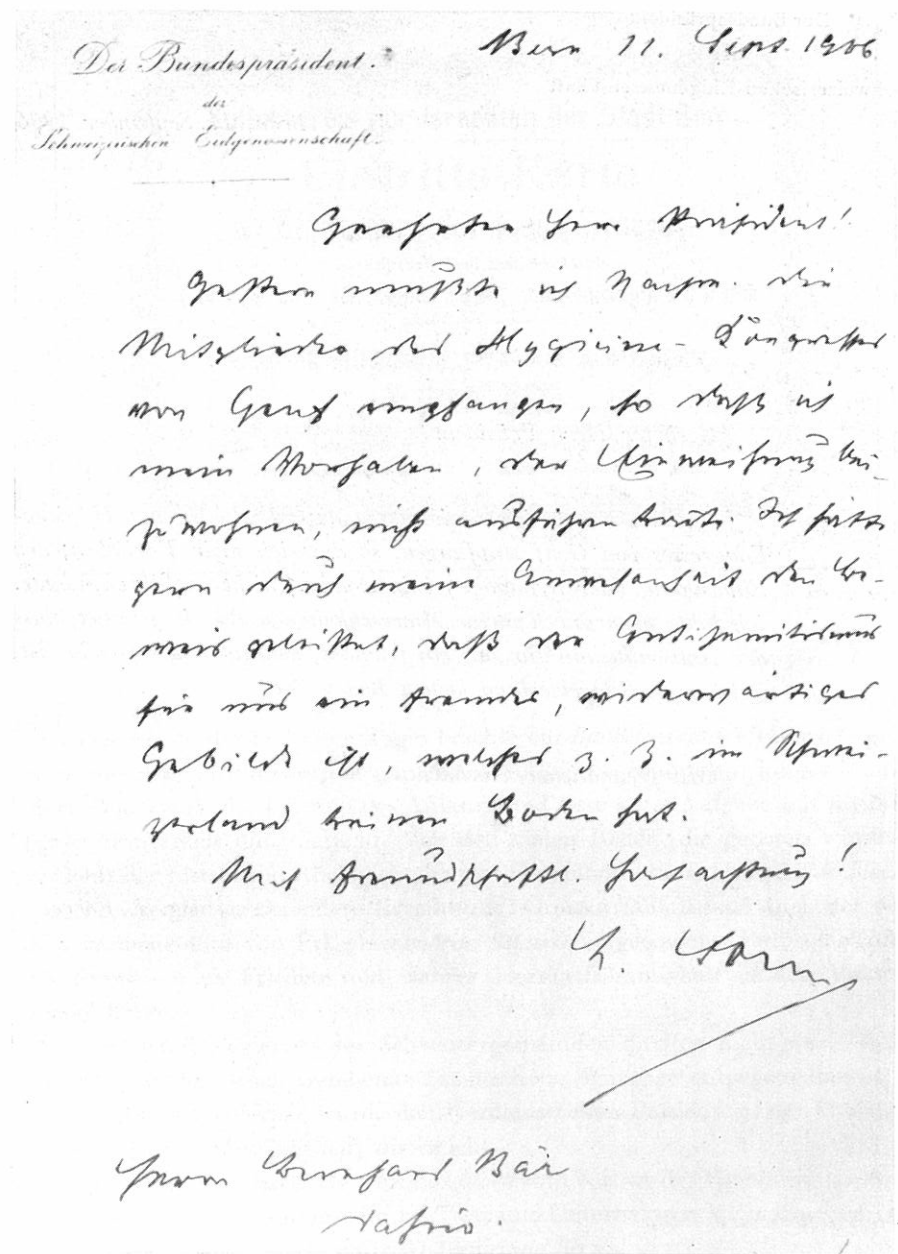 Der Bundespräsident
der
Schweizerischen Eidgenossenschaft.
Bern 11. Sept. 1906.
Geehrter Herr Präsident!
Gestern mußte ich Nachm. die
Mitglieder des Hygieine-Kongresses
von Genf empfangen, so daß ich
mein Vorhaben, der Einweihung bei-
zuwohnen, nicht ausführen konnte. Ich hätte
gern durch meine Anwesenheit den Be-
weis geleistet, daß der Antisemitismus
für uns ein fremdes, widerwärtiges
Gebilde ist, welches z. Z. im Schwei-
zerland keinen Boden hat.
Mit freundschaftl. Hochachtung!
L. Forrer
Herrn Bernhard Bär
dahier.